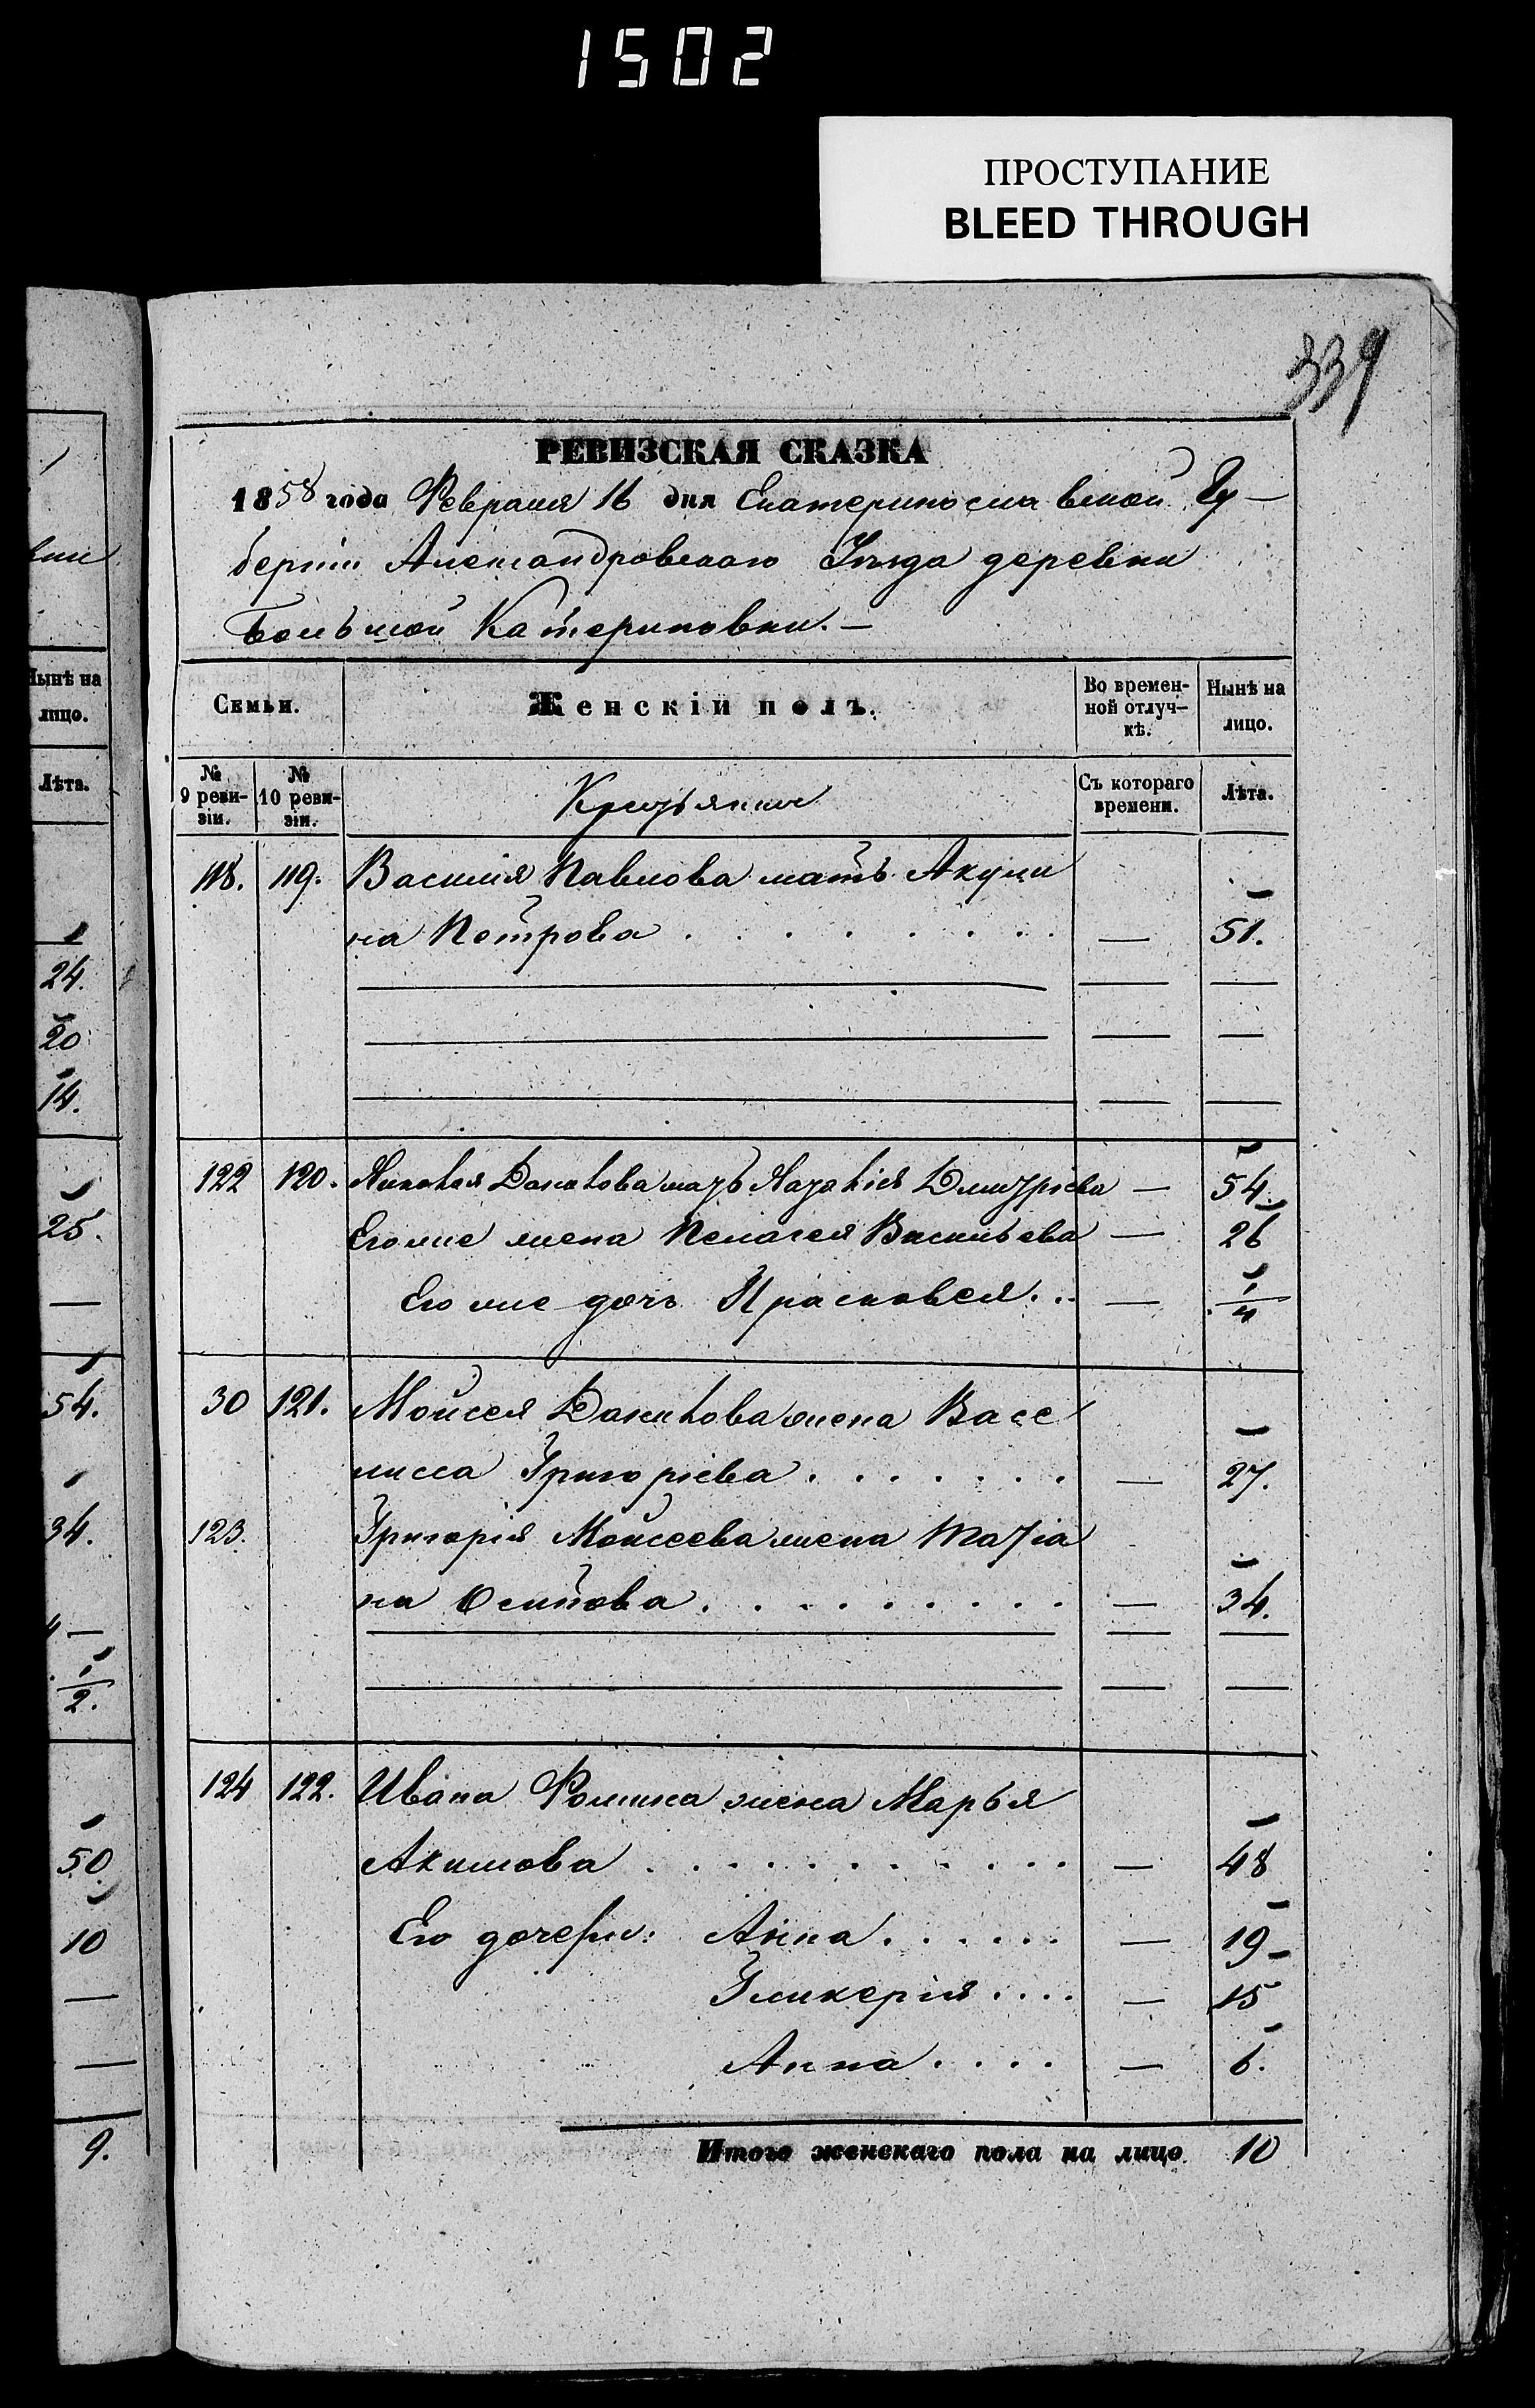 1502
ПРОСТУПАНИЕ
BLEED THROUGH
339
РЕВИЗСКАЯ СКАЗКА
1858 года Февраля 16 дня Екатеринославской Гу-
берніи Александровскаго Уѣзда деревни
Большой Катериновки. —
Семьи. Женскій полъ. Во времен-ной отлуч-кѣ. Нынѣ на лицо.
№ 9 реви-зіи. № 10 реви-зіи. Крестьяне Съ котораго времени. Лѣта.
118. 119. Василія Павлова мать Акули
на Петрова . . . . . . . . — 51.
122 120. Якова Данилова мать Дмитріева — 54.
Его же жена Пелагея Васильева — 26
Его же дочь Прасковея . . . — 1/4
30 121. Мойсея Данилова жена Васе
лисса Григорієва . . . . . . . — 27.
123. Григорія Мойсеева жена Матіа
на Осипова . . . . . . . . . — 34.
124 122. Ивана Фомина жена Марья
Акимова . . . . . . . . . . . — 48
Его дочери: Анна . . . . . . — 19
Гликерія . . . . — 15
Анна . . . . — 6.
Итого женскаго пола на лицо 10
вки
Нынѣ на
лицо.
Лѣта.
24.
20
14.
25.
—
54.
34.
1/2.
50
10
—
—
9.